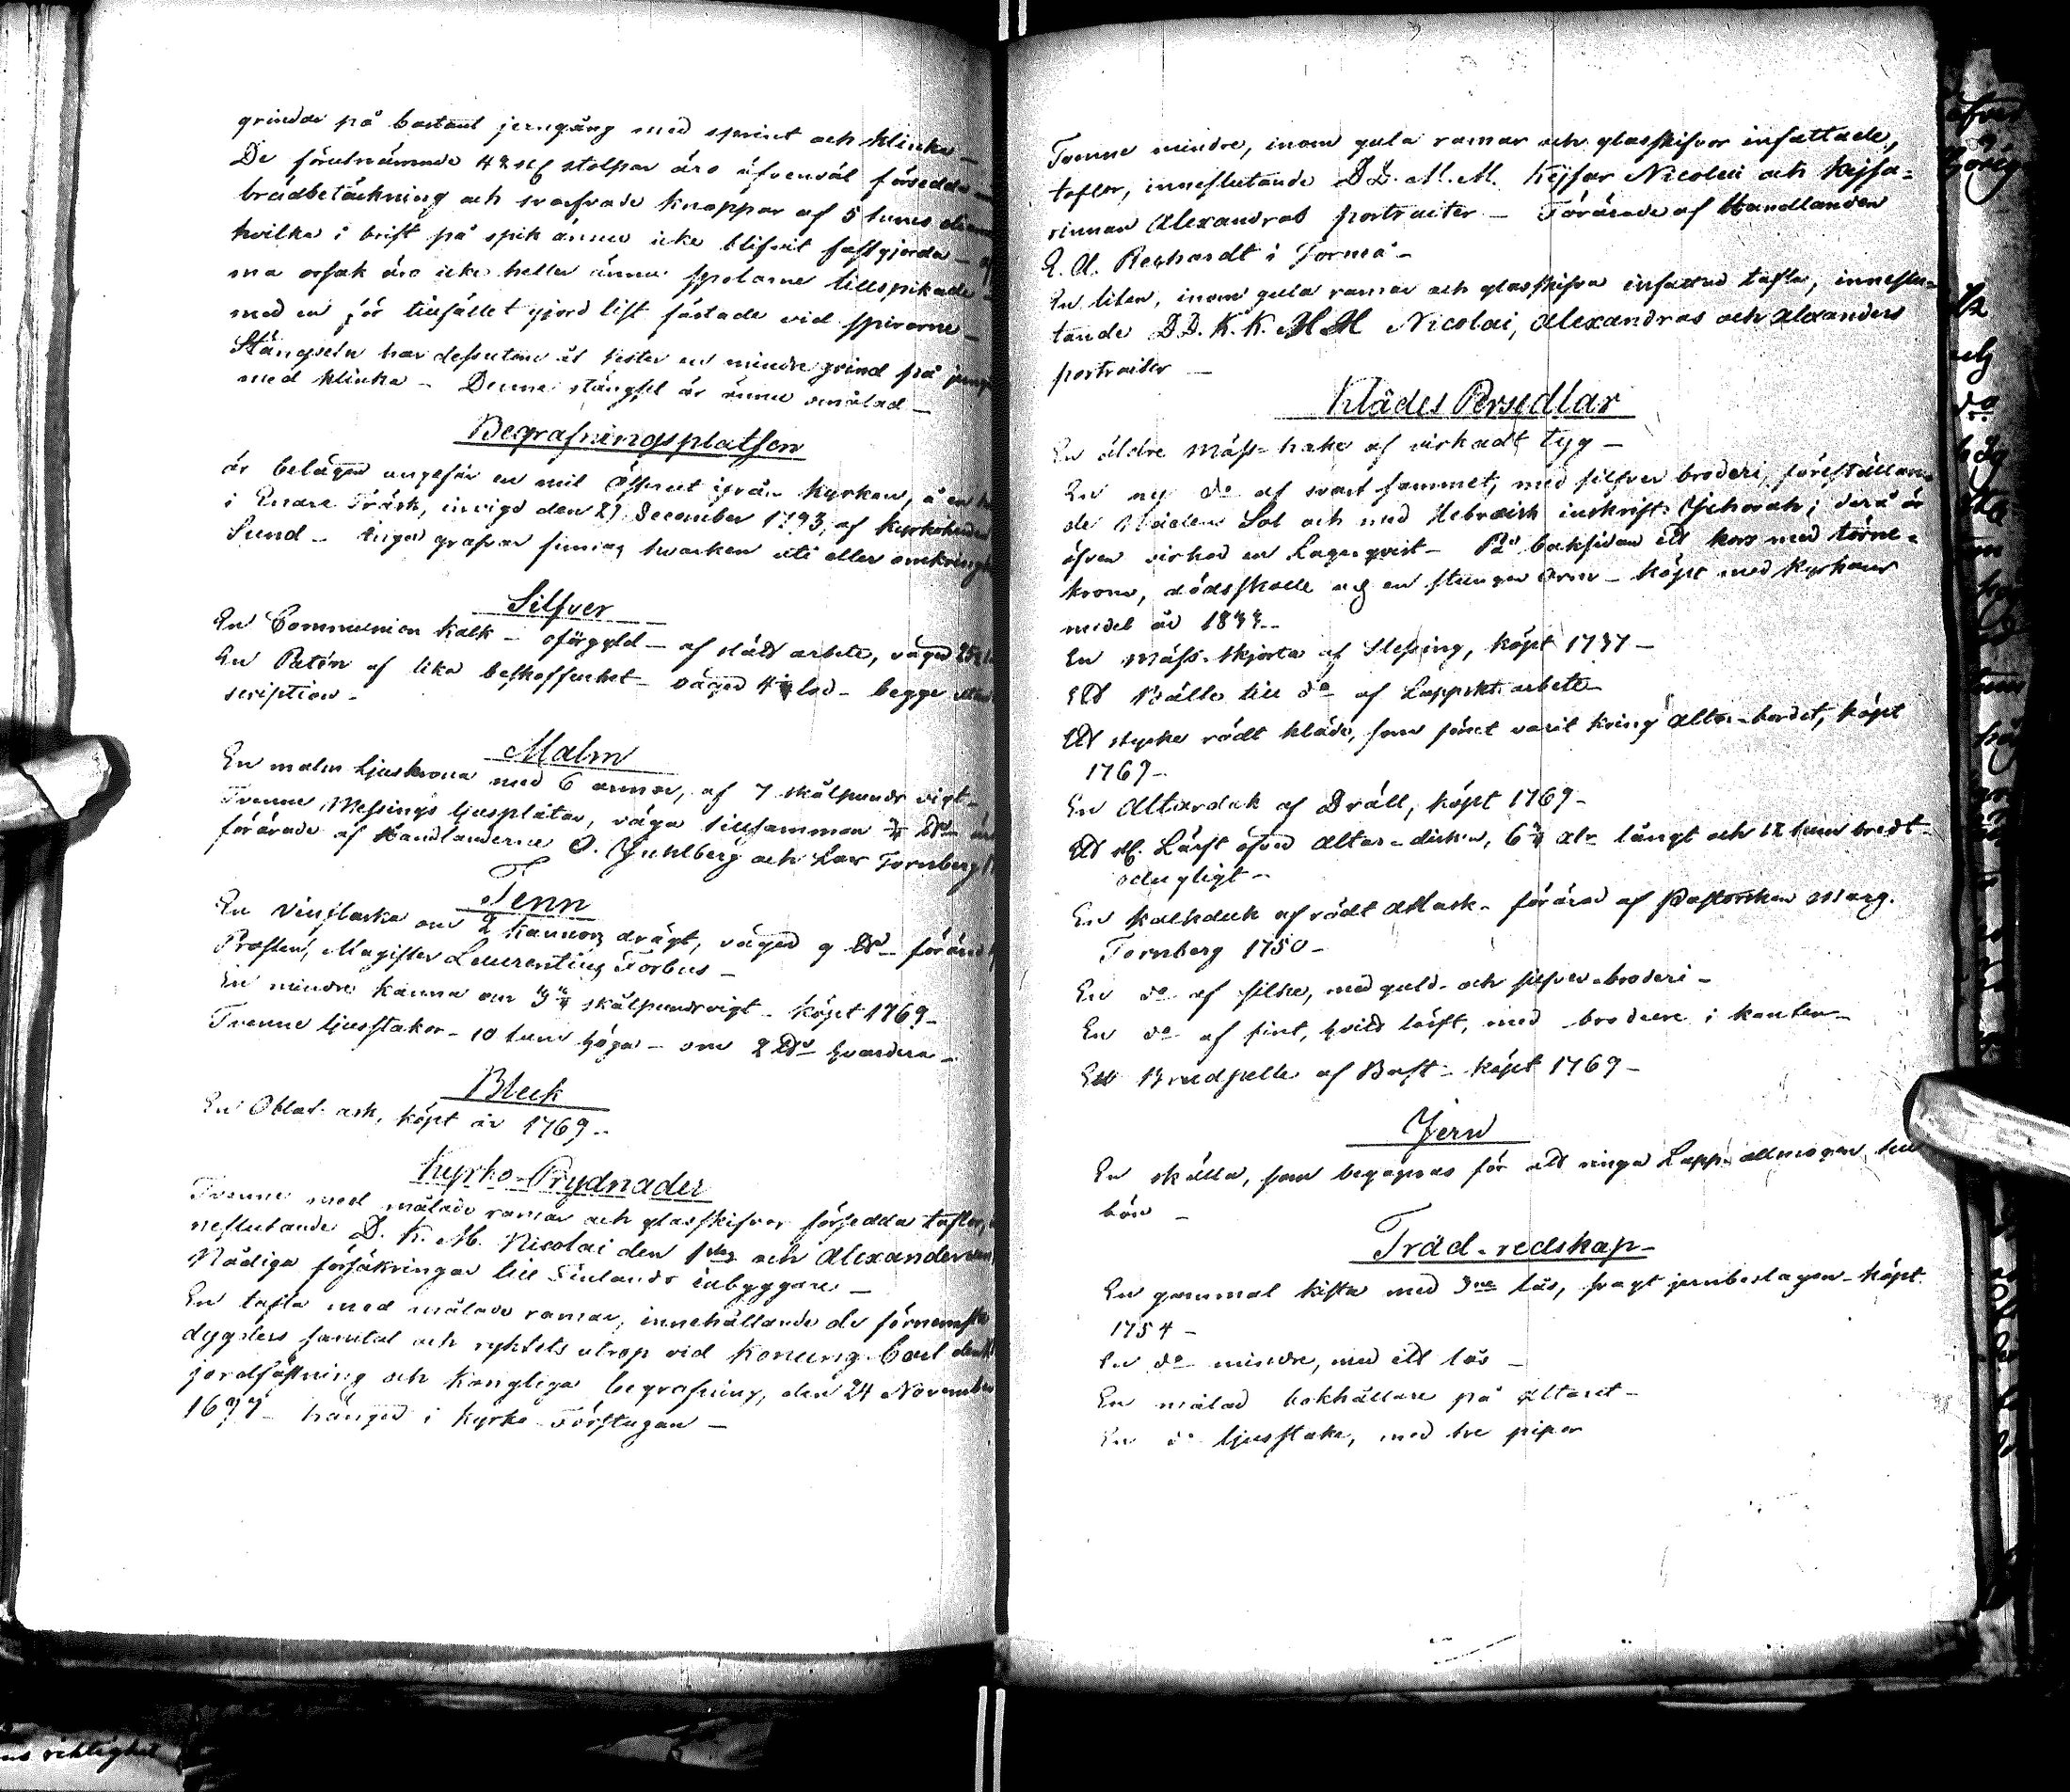 grindar på bastant jerngång med sprint och klinka –
De förutnämnde 42 st stolpar äro äfvenväl försedde
brädbetäckning och svarfvade knappar af 5 tums
hvilka i brist på spik ännu icke blifvit fastgjorda –
ma orsak äro icke heller ännu spolarne tillspikade
med en för tillfället gjord list fästade vid spirorne –
Stängseln har dessutom åt vester en mindre grind på
med klinka – Denne stängsel är ännu omålad –
Begrafningsplatsen
är belägen ungefär en mil Östrut ifrån kyrkan, å en
i Enare Träsk, invigd den 27 December 1793, af Kyrkoherden
Sund – Inga grafvar finnas hvarken uti eller omkring
Silfver
En Communion kalk – oförgyld – af slätt arbete, väger
En Patén af lika beskaffenhet – väger 4 lod – begge utan
scription –
Malm
En malm ljuskrona med 6 armar, af 7 skålpunds vigt –
Tvenne Messings ljusplåtar, väga tillsamman
förärade af Handlanderne O. Juhlberg och Lars Tornberg
Tenn
En Vinflaska om 2 kannors drägt, väger 9 – förärad
Prosten, Magister Laurentius Forbus –
En mindre kanna om 3 skålpundsvigt – köpt 1769 –
Tvenne ljusstakar – 10 tum höga – om 2 hvardera –
Bleck
En Oblat-ask, köpt år 1769 –
Kyrko-Prydnader
Tvenne med målade ramar och glasskifvor försedda taflor,
neslutande D. K. M. Nicolai den 1 och Alexander
Nådiga försäkringar till Finlands inbyggare –
En tafla med målade ramar, innehållande de förnemsta
dygders samtal och ryktets utrop vid Konung Carl
jordfästning och kongliga begrafning, den 24 November
1697 – hänger i kyrko-Förstugan –
Tvenne mindre, inom gula ramar och glasskifvor infattade,
taflor, inneslutande DD. M.M. Kejsar Nicolai och Kejsa=
rinnan Alexandras portraiter – Förärade af Handlanden
E. A. Reghardt i Torneå –
En liten, inom gula ramar och glasskifva infattad tafla, inneslu=
tande D.D. K.K. M M Nicolai, Alexandras och Alexanders
portraiter –
Klädes Persedlar
En äldre Mäss-hake af virkadt tyg –
En ny do af svart sammet, med silfver broderi, föreställan=
de Nådens Sol och med Hebraisk inskrift: Jehovah; derå är
äfven virkad en Lagerqvist – På baksidan ett kors med törne=
krona, dödsskalle och en stungen Orm – köpt med kyrkans
medel år 1833 –
En Mäss-skjorta af Slessing, köpt 1737 –
Ett Bälte till do af Lappskt arbete –
Ett stycke rödt kläde, som förut varit kring Altar-bordet, köpt
1769 –
En Altarduk af Dräll, köpt 1769 –
Ett st. Lärft öfver Altar-disken, 6 aln långt och 12 tum bredt –
odugligt –
En kalkduk af rödt Atlask – förärad af Pastorskan Marg.
Tornberg 1750 –
En do af silke, med guld- och silfver-broderi –
En do af fint, hvitt lärft, med brodere i kanten –
Ett Brudpelle af Baft – köpt 1769 –
Jern
En skälla, som begagnas för att ringa Lapp-allmogen till
bön –
Träd-redskap –
En gammal kista med 3ne lås, svagt jernbeslagen – köpt
1754 –
En do mindre, med ett lås –
En målad bokhållare på altaret –
En do ljusstake, med tre pipor